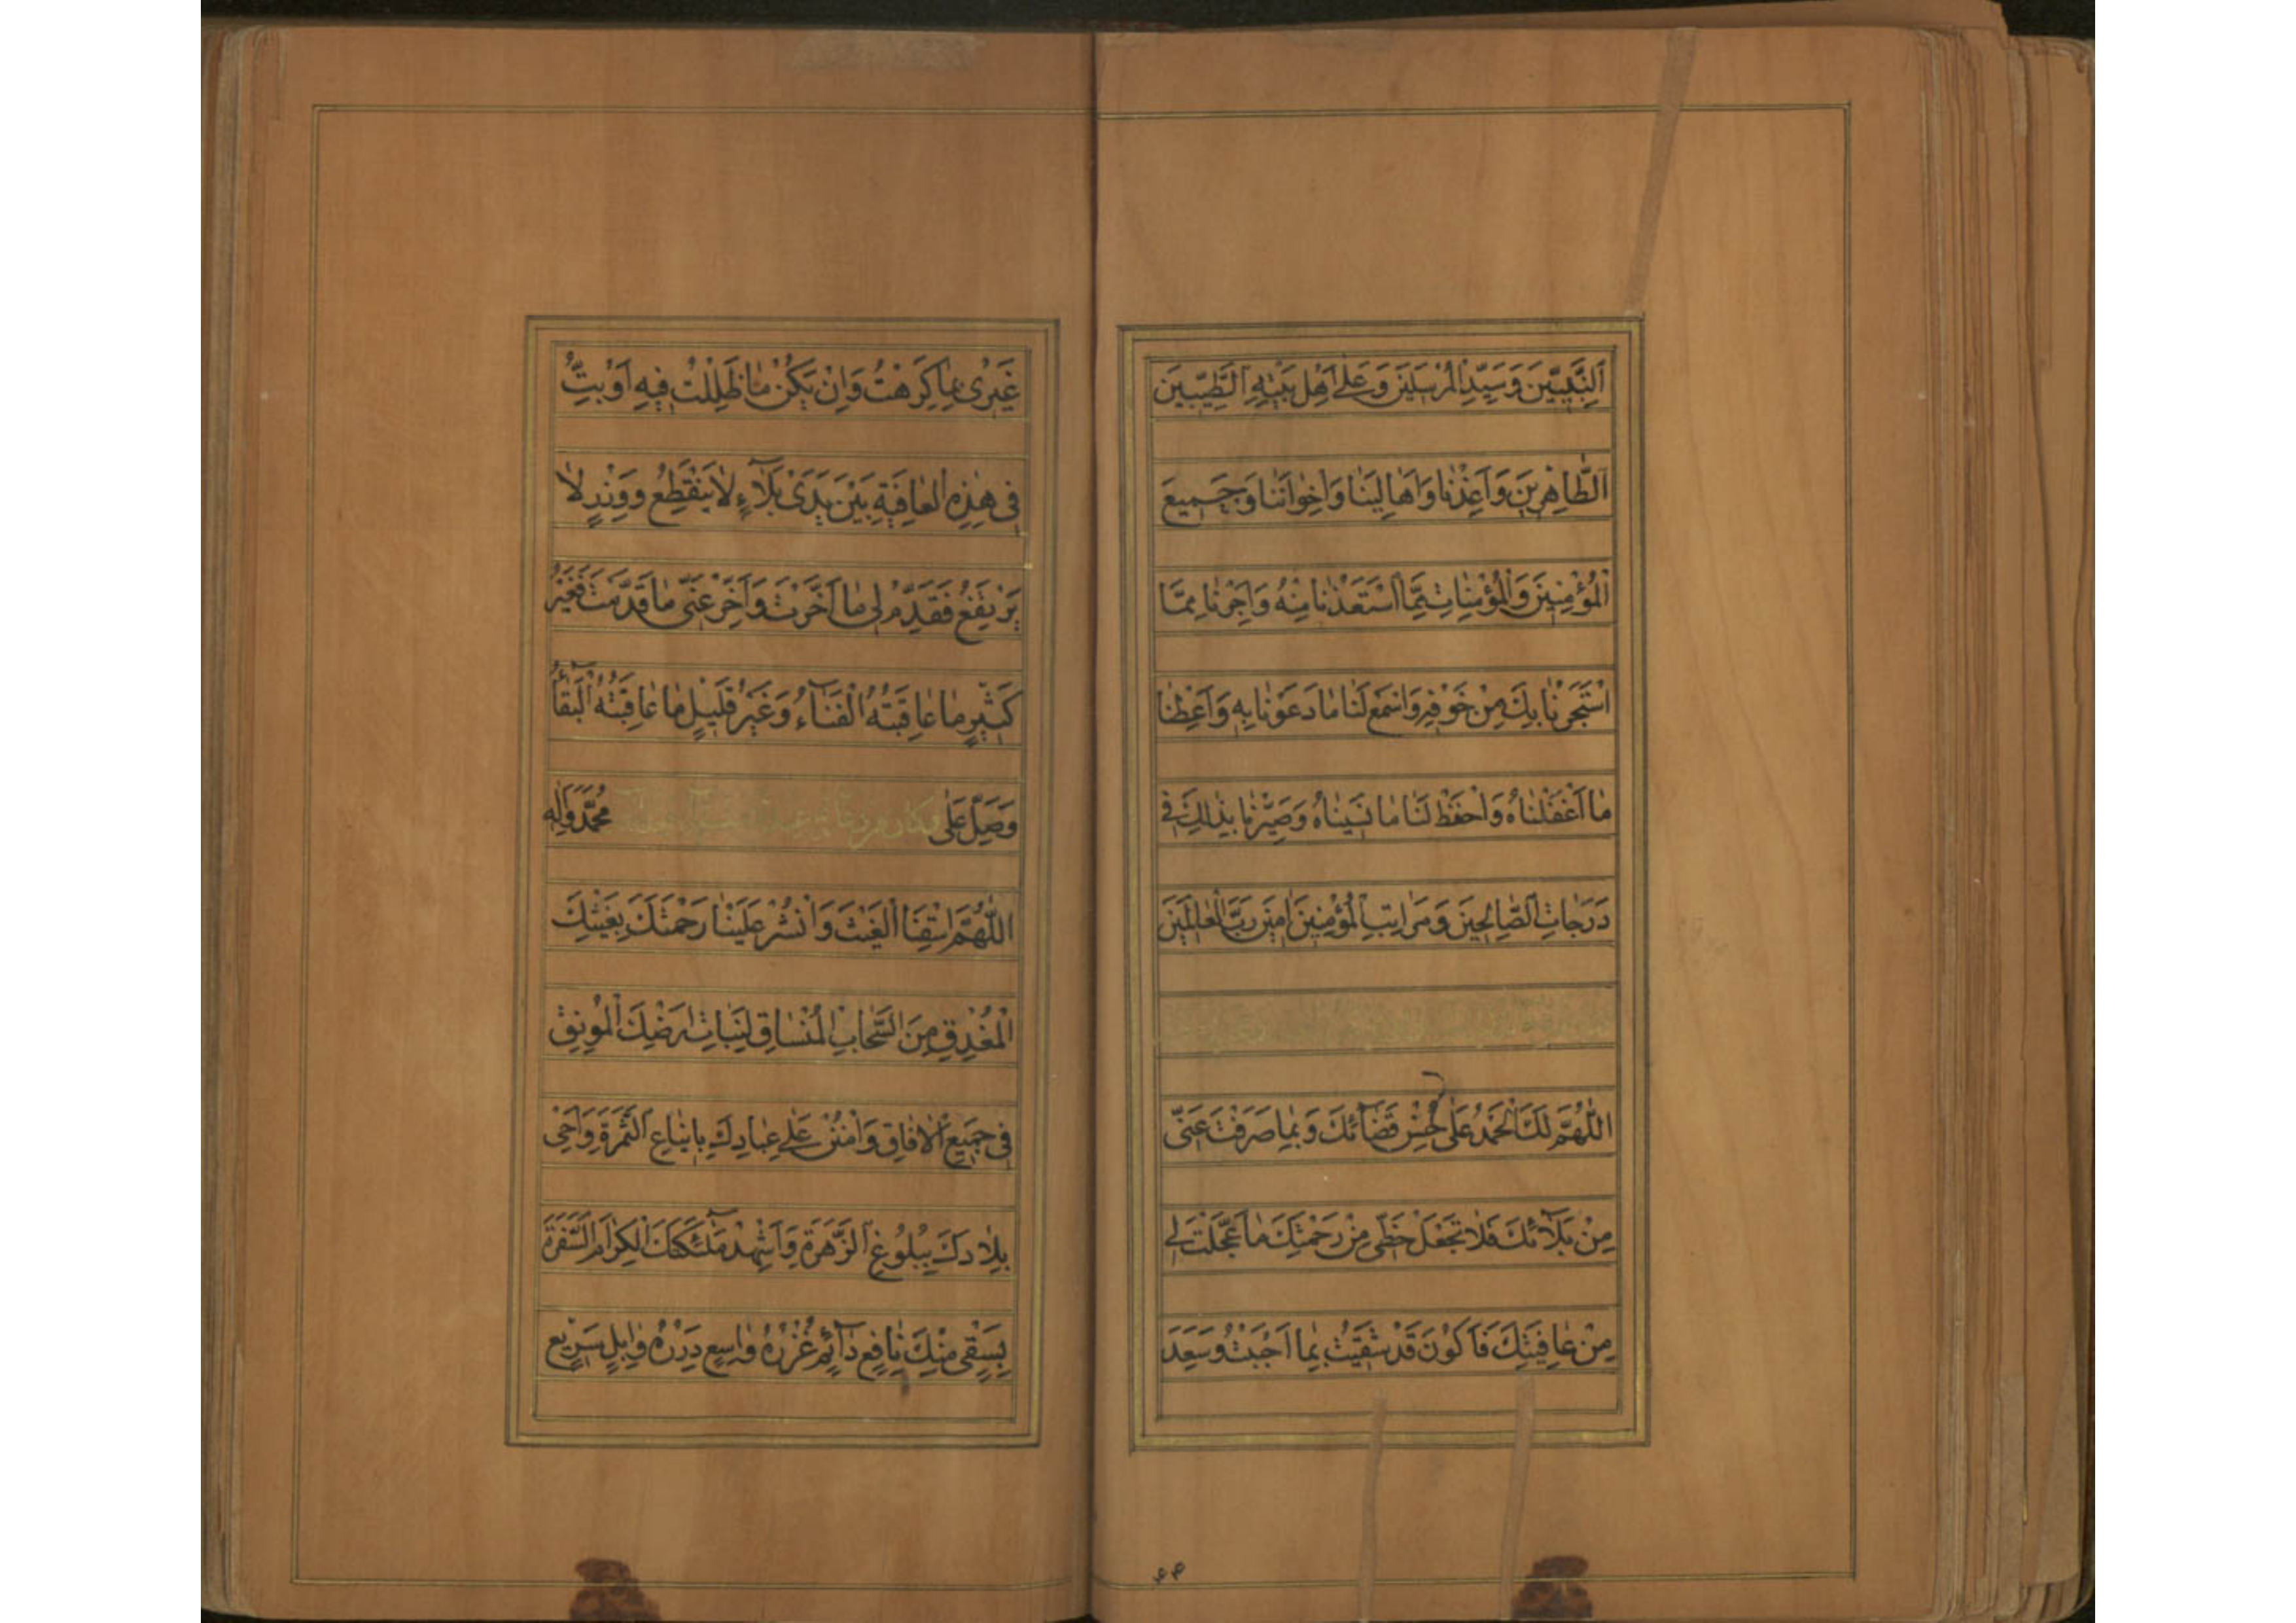 اَلنَّبِيّينَ وَسَيِّدِ الْمُرْسَلينَ وَعَلىٰ اَهْلِ بَيْتِهِ الطَّيِّبينَ
اَلطّاهِرينَ وَاَعِذْنا وَاَهالِيَنا وَاِخْوانَنا وَجَميعَ
الْمُؤْمِنينَ وَالْمُؤْمِناتِ مِمَّا اسْتَعَذْنا مِنْهُ وَاَجِرْنا مِمَّا
اسْتَجَرْنا بِكَ مِنْ خَوْفِهِ وَاسْمَعْ لَنا ما دَعَوْنا بِهِ وَاَعْطِنا
ما اَغْفَلْناهُ وَاحْفَظْ لَنا ما نَسيناهُ وَصَيِّرْنا بِذٰلِكَ فى
دَرَجاتِ الصّالِحينَ وَمَراتِبِ الْمُؤْمِنينَ امينَ رَبَّ الْعالَمينَ
اَللّٰهُمَّ لَكَ الْحَمْدُ عَلىٰ حُسْنِ قَضآئِكَ وَبِما صَرَفْتَ عَنّى
مِنْ بَلآئِكَ فَلا تَجْعَلْ حَظّى مِنْ رَحْمَتِكَ ما عَجَّلْتَ لى
مِنْ عافِيَتِكَ فَاَكُونَ قَدْ شَقيتُ بِما اَحْبَبْتُ وَسَعِدَ
غَيْرى بِما كَرِهْتُ وَاِنْ يَكُنْ ما ظَلِلْتُ فيهِ اَوْ بِتُّ
فى هٰذِهِ الْعافِيَةِ بَيْنَ يَدَىْ بَلآءٍ لا يَنْقَطِعُ وَوِزْرٍ لا
يَرْتَفِعُ فَقَدِّمْ لى ما اَخَّرْتَ وَاَخِّرْ عَنّى ما قَدَّمْتَ فَغَيْرُ
كَثيرٍ ما عاقِبَتُهُ الْفَنآءُ وَغَيْرُ قَليلٍ ما عاقِبَتُهُ الْبَقآءُ
وَصَلِّ عَلىٰ مُحَمَّدٍ وَالِهِ
اَللّٰهُمَّ اسْقِنَا الْغَيْثَ وَانْشُرْ عَلَيْنا رَحْمَتَكَ بِغَيْثِكَ
الْمُغْدِقِ مِنَ السَّحابِ الْمُنْساقِ لِنَباتِ اَرْضِكَ الْمُونِقِ
فى جَميعِ الْافاقِ وَامْنُنْ عَلىٰ عِبادِكَ بِايناعِ الثَّمَرَةِ وَاَحْىِ
بِلادَكَ بِبُلُوغِ الزَّهَرَةِ وَاَشْهِدْ مَلٰٓئِكَتَكَ الْكِرامَ السَّفَرَةَ
بِسَقْىٍ مِنْكَ نافِعٍ دآئِمٍ غُزْرُهُ واسِعٍ دِرَرُهُ وابِلٍ سَريعٍ